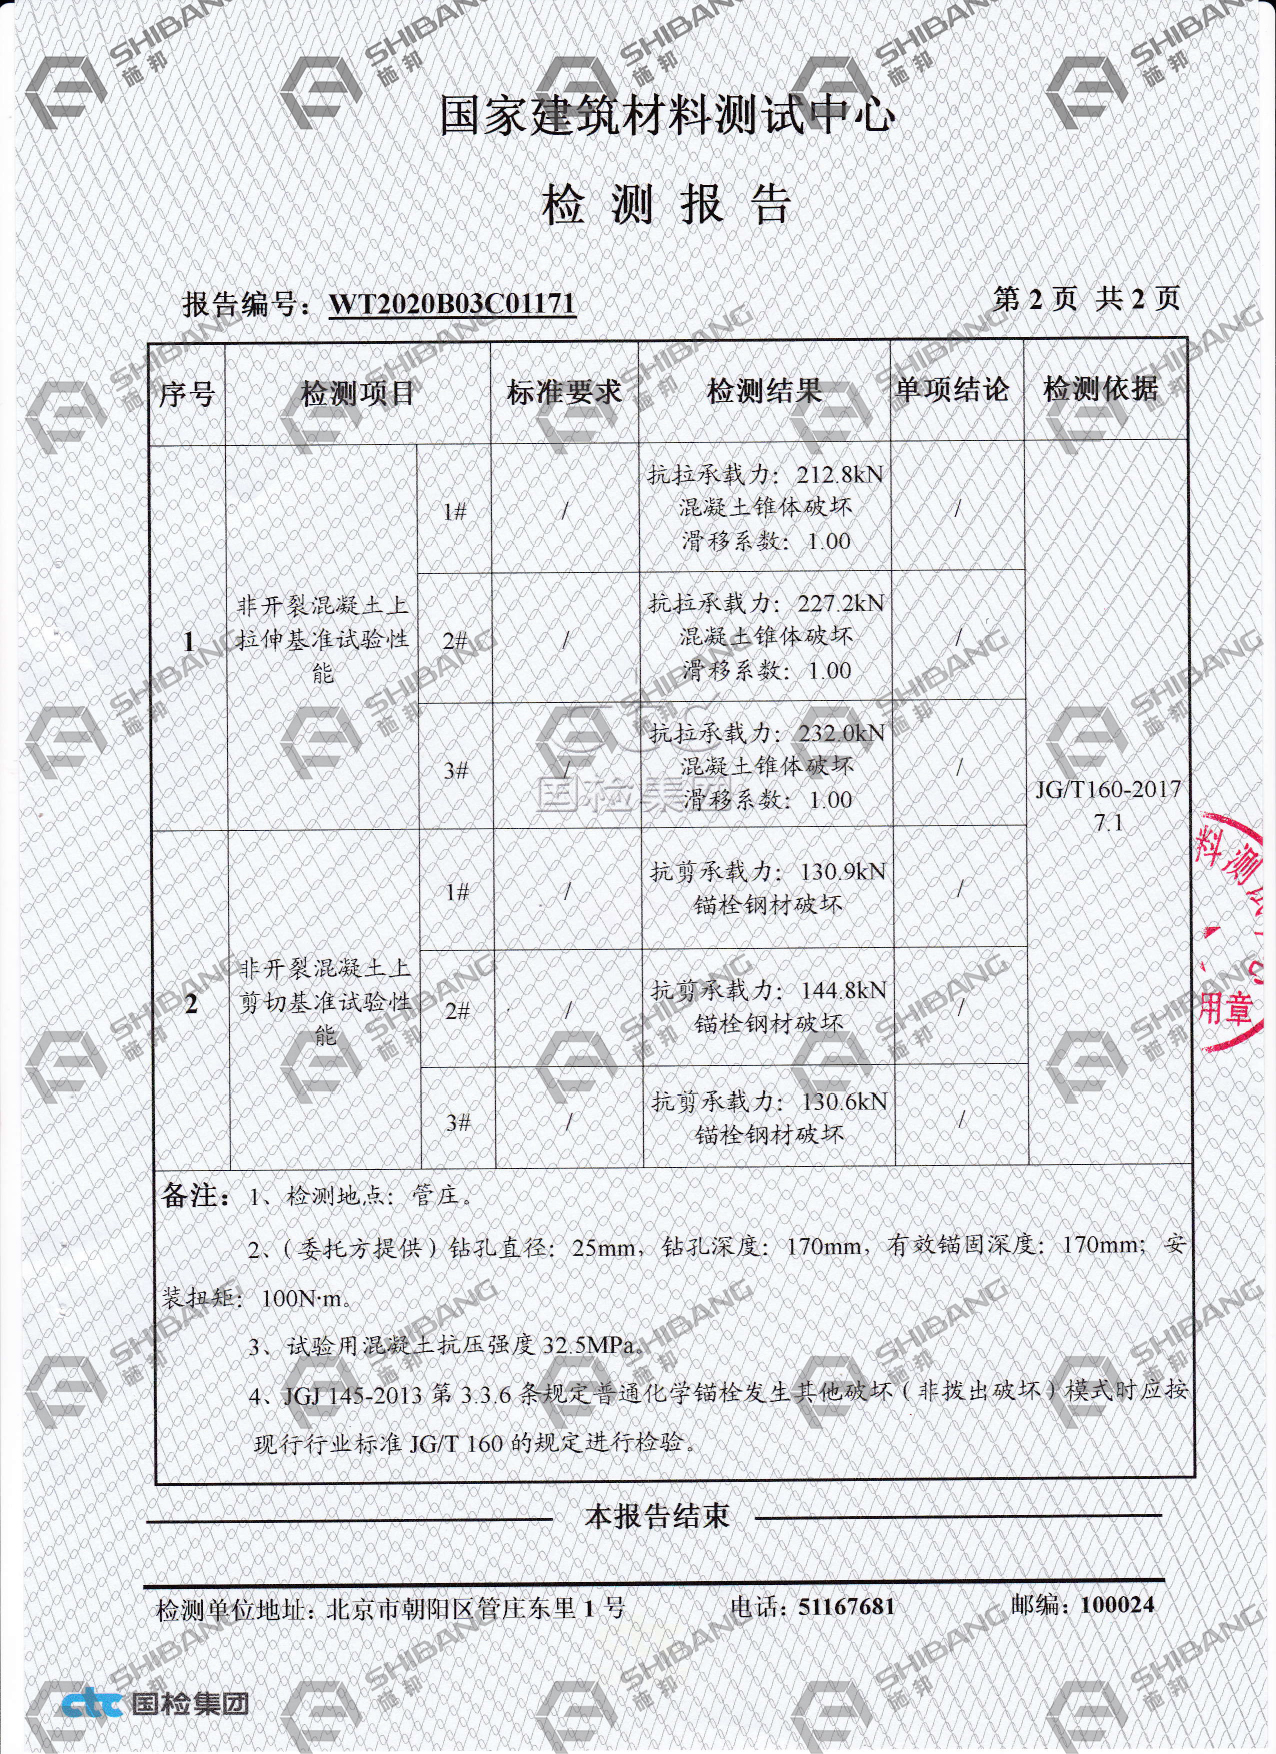 国家建筑材料测试中心
检测报告
报告编号：WT2020B03C01171
第 2 页 共 2 页
序号 检测项目 标准要求 检测结果 单项结论 检测依据
1
非开裂混凝土上
拉伸基准试验性
能
1# /
抗拉承载力：212.8kN
混凝土锥体破坏
滑移系数：1.00
/
2# /
抗拉承载力：227.2kN
混凝土锥体破坏
滑移系数：1.00
/
3# /
抗拉承载力：232.0kN
混凝土锥体破坏
滑移系数：1.00
/
JG/T160-2017
7.1
2
非开裂混凝土上
剪切基准试验性
能
1# /
抗剪承载力：130.9kN
锚栓钢材破坏
/
2# /
抗剪承载力：144.8kN
锚栓钢材破坏
/
3# /
抗剪承载力：130.6kN
锚栓钢材破坏
/
备注：1、检测地点：管庄。
2、（委托方提供）钻孔直径：25mm，钻孔深度：170mm，有效锚固深度：170mm；安
装扭矩：100N·m。
3、试验用混凝土抗压强度 32.5MPa。
4、JGJ 145-2013 第 3.3.6 条规定普通化学锚栓发生其他破坏（非拨出破坏）模式时应按
现行行业标准 JG/T 160 的规定进行检验。
本报告结束
检测单位地址：北京市朝阳区管庄东里 1 号
电话：51167681
邮编：100024
ctc 国检集团
CTC
国检集团
料测试
用章
SHIBANG
施邦